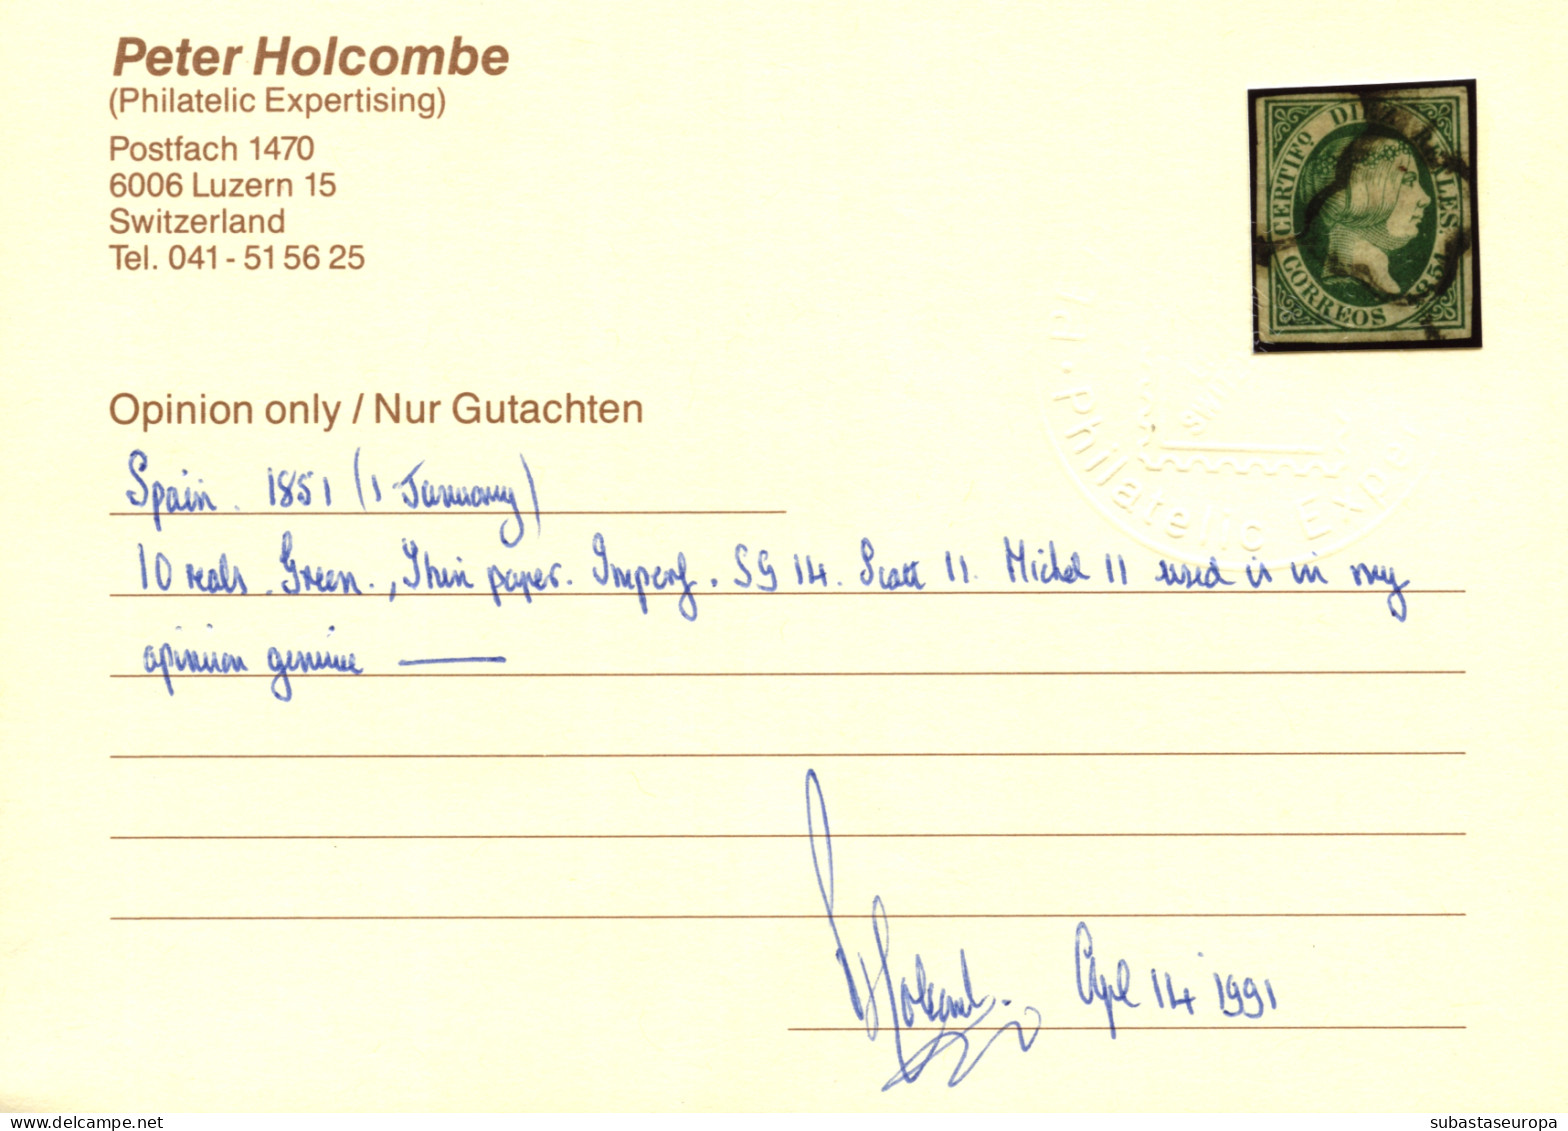 Peter Holcombe
(Philatelic Expertising)
Postfach 1470
6006 Luzern 15
Switzerland
Tel. 041 - 51 56 25
CERTIFO DIEZ REALES.
CORREOS 1851
Philatelic Exper
Opinion only / Nur Gutachten
Spain. 1851 (1 January)
10 reals. Green., Thin paper. Imperf. SG 14. Scott 11. Michel 11 used is in my
opinion genuine
P Holcombe. April 14 1991
subastaseuropa